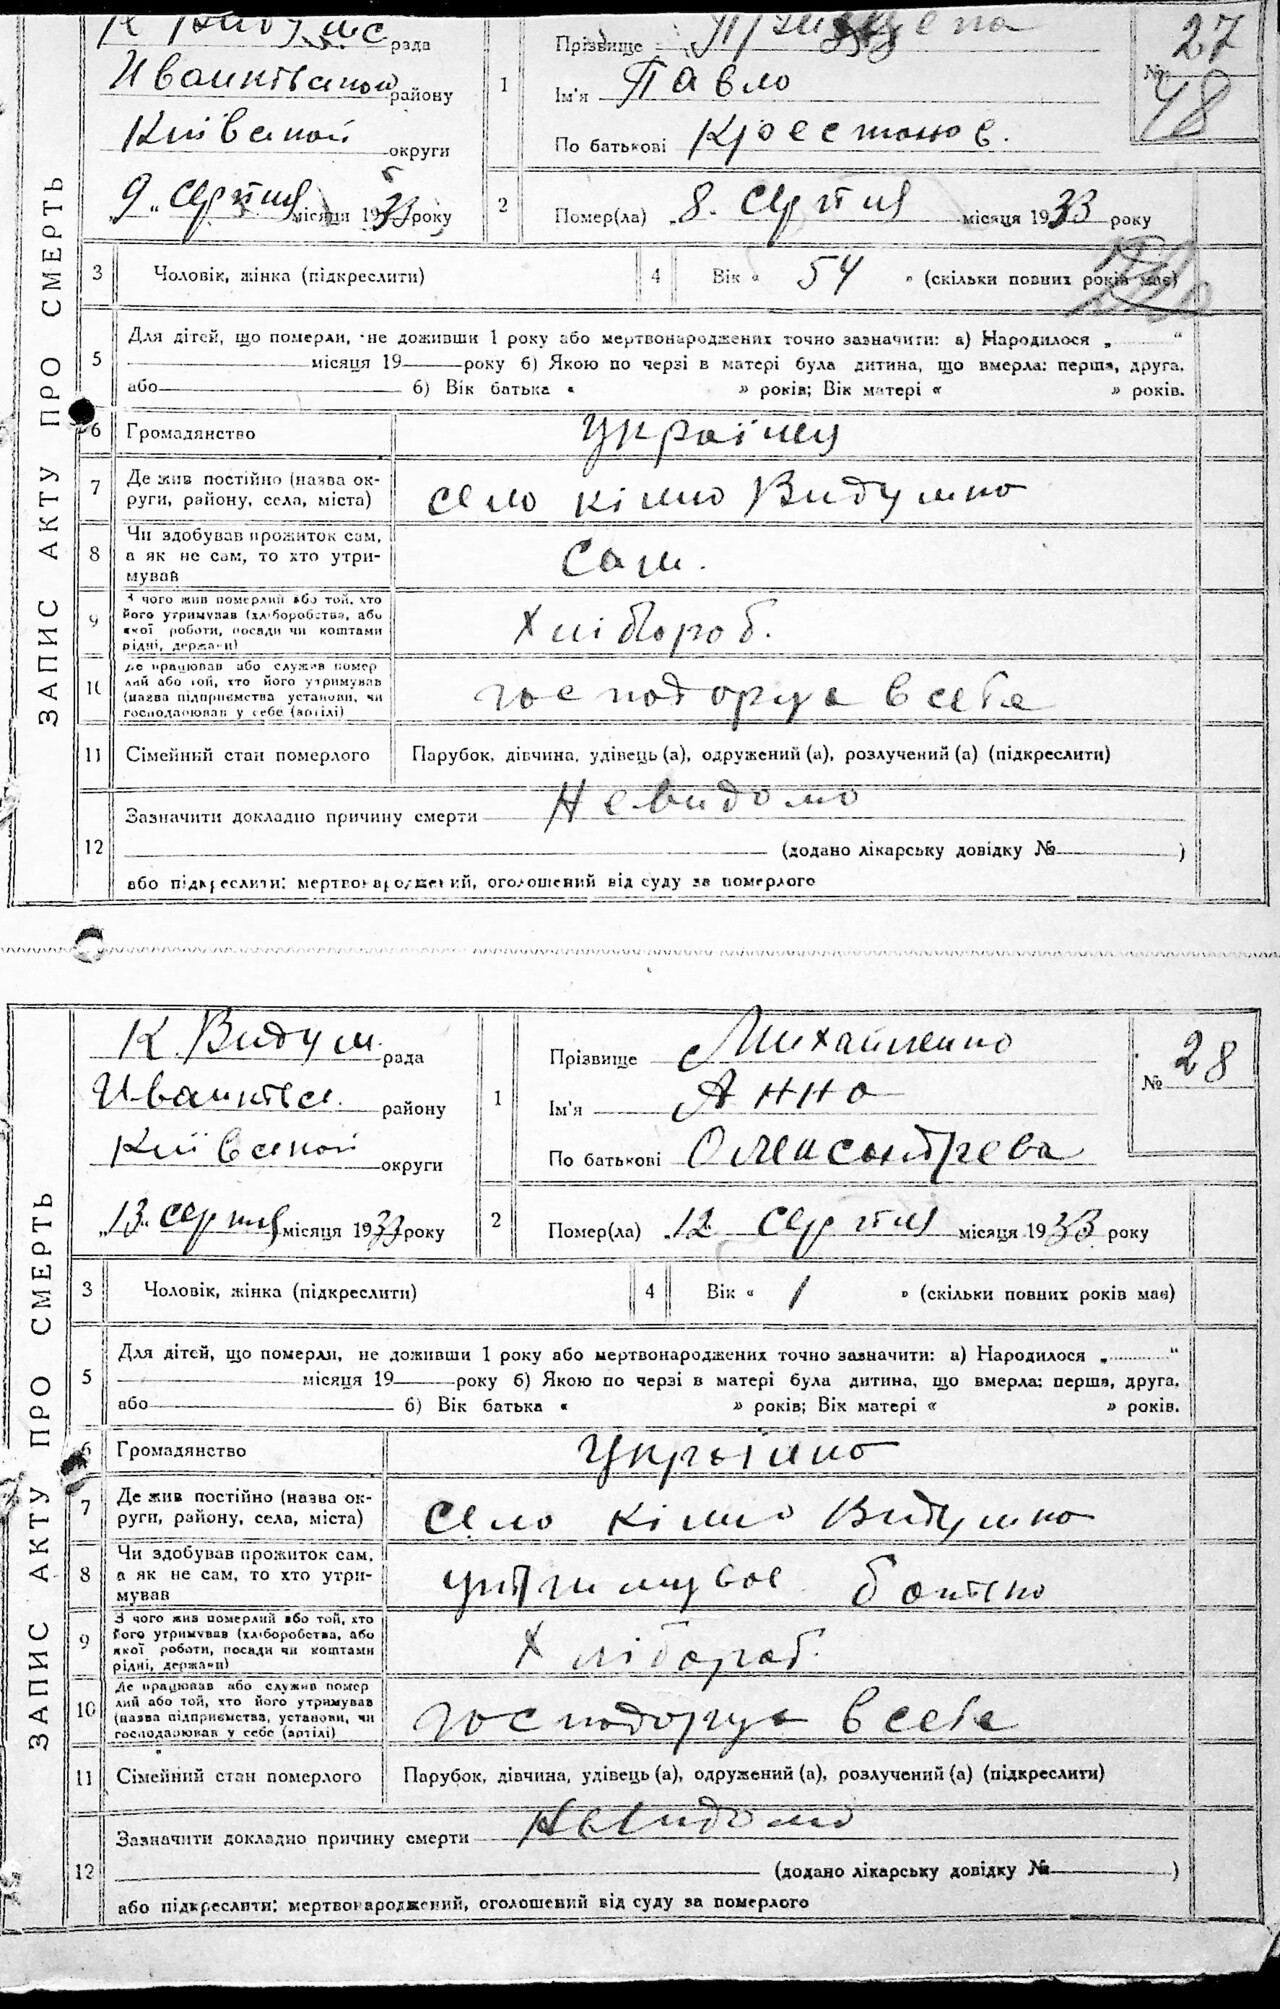 К Видумс рада
Иванківської району
Київської округи
„9„ серпня місяця 1933 року
1
Прізвище
Ім'я Павло
По батькові
№ 27
48
2
Помер(ла) „8. серпня місяця 1933 року
ЗАПИС АКТУ ПРО СМЕРТЬ
3 Чоловік, жінка (підкреслити)
4 Вік « 54 » (скільки повних років має)
5
Для дітей, що померли, не доживши 1 року або мертвонароджених точно зазначити: а) Народилося „ “
місяця 19 року б) Якою по черзі в матері була дитина, що вмерла: перша, друга,
або б) Вік батька « » років; Вік матері « » років.
6 Громадянство Україня
7 Де жив постійно (назва ок-
руги, району, села, міста) село кімно Видумка
8 Чи здобував прожиток сам,
а як не сам, то хто утри-
мував Сам.
9 З чого жив померлий або той, хто
його утримував (хліборобства, або
якої роботи, посади чи коштами
рідні, держави) Хлібороб.
10 Де працював або служив помер
лий або той, хто його утримував
(назва підприємства установи, чи
господарював у себе (артілі) господарує в себе
11 Сімейний стан померлого Парубок, дівчина, удівець (а), одружений (а), розлучений (а) (підкреслити)
12 Зазначити докладно причину смерти Невидомо
(додано лікарську довідку № )
або підкреслити: мертвонароджений, оголошений від суду за померлого
К. Видум. рада
Иванківс. району
Київської округи
„13„ серпня місяця 1933 року
1
Прізвище Михайленко
Ім'я Анна
По батькові Олександрева
№ 28
2
Помер(ла) „12. серпня місяця 1933 року
ЗАПИС АКТУ ПРО СМЕРТЬ
3 Чоловік, жінка (підкреслити)
4 Вік « 1 » (скільки повних років має)
5
Для дітей, що померли, не доживши 1 року або мертвонароджених точно зазначити: а) Народилося „ “
місяця 19 року б) Якою по черзі в матері була дитина, що вмерла: перша, друга,
або б) Вік батька « » років; Вік матері « » років.
6 Громадянство Україно
7 Де жив постійно (назва ок-
руги, району, села, міста) село кімно Видумка
8 Чи здобував прожиток сам,
а як не сам, то хто утри-
мував утримував батько
9 З чого жив померлий або той, хто
його утримував (хліборобства, або
якої роботи, посади чи коштами
рідні, держави) Хлібороб.
10 Де працював або служив помер
лий або той, хто його утримував
(назва підприємства, установи, чи
господарював у себе (артілі) господарує в себе
11 Сімейний стан померлого Парубок, дівчина, удівець (а), одружений (а), розлучений (а) (підкреслити)
12 Зазначити докладно причину смерти Невидомо
(додано лікарську довідку № )
або підкреслити: мертвонароджений, оголошений від суду за померлого